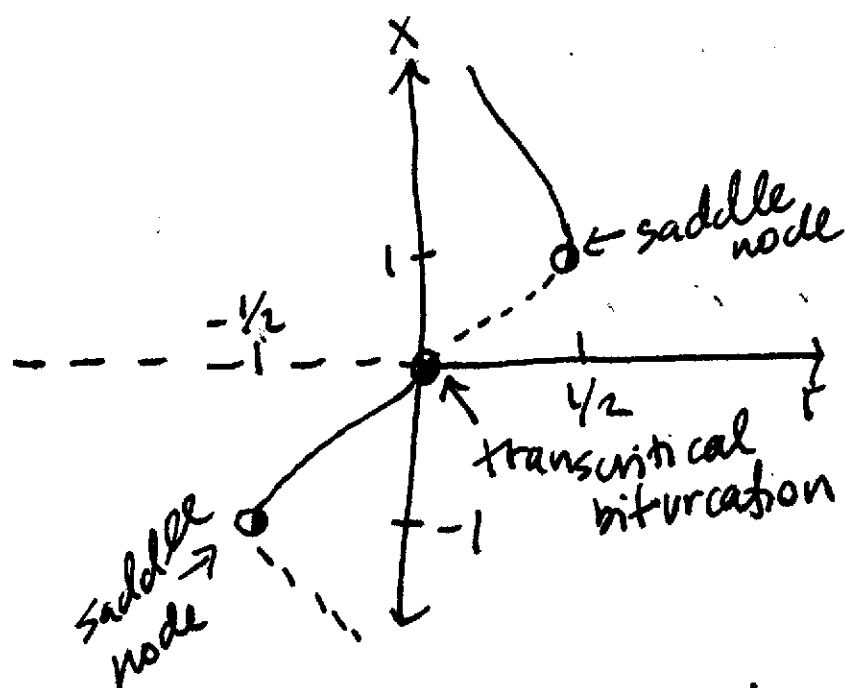 x
saddle
node
1
-1/2
1/2
r
transcritical
bifurcation
-1
saddle
node